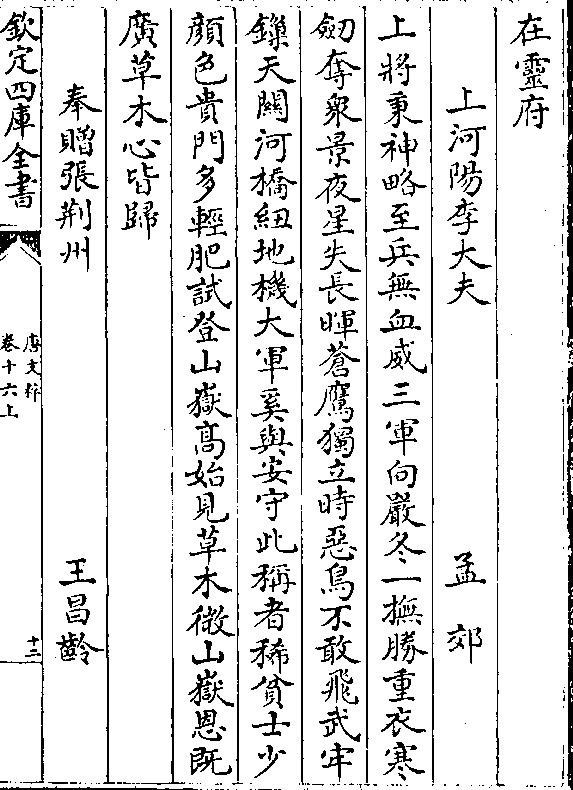 在靈府
上河陽李大夫 孟郊
上將秉神略至兵無血威三軍向嚴冬一撫勝重衣寒
劒奪衆景夜星失長暉蒼鷹獨立時惡鳥不敢飛武牢
鏁天關河橋紐地機大軍奚與安守此稱者稀貧士少
顔色貴門多輕肥試登山嶽髙始見草木微山嶽恩既
廣草木心皆歸
奉贈張荆州 王昌齡
欽定四庫全書
唐文粹
卷十六上
十二